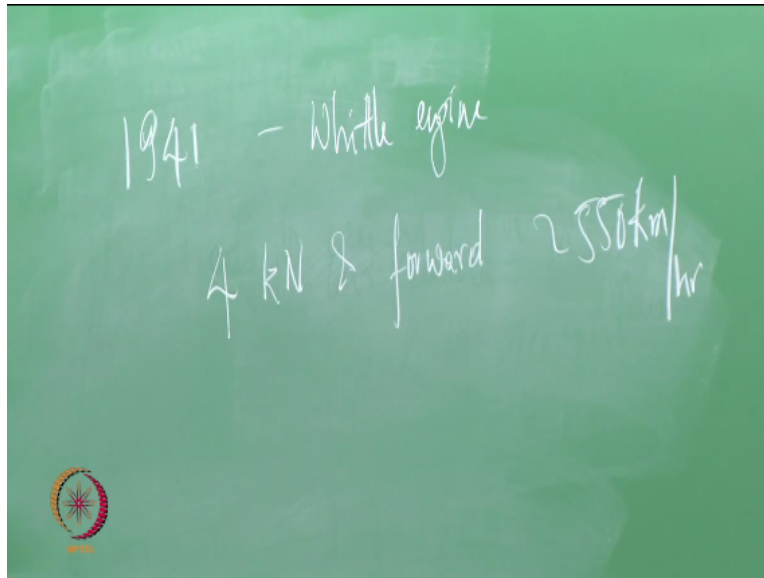 1941 - Whittle engine
4 kN & forward ~ 550 km/hr